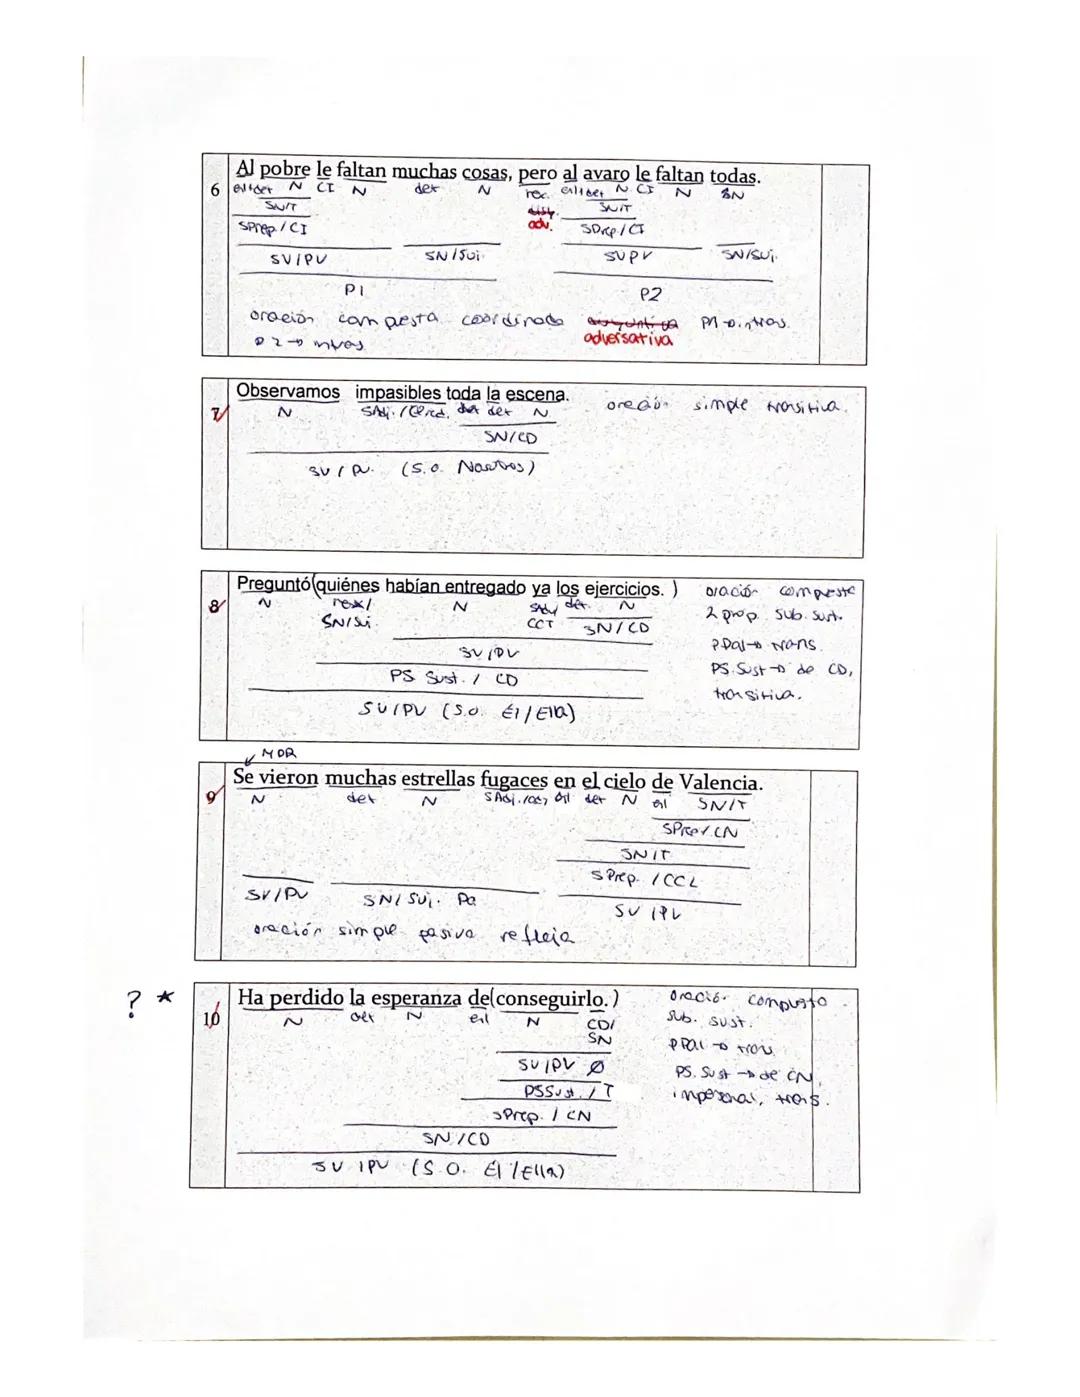 6 Al pobre le faltan muchas cosas, pero al avaro le faltan todas.
enl+det N CI N det N nex. enl+det N CI N SN
SN/T SN/T
adv.
SPrep/CI SPrep/CI
SV/PV SN/Suj. SV/PV SN/Suj.
P1 P2
oración compuesta coordinada adversativa P1→intras.
P2→intras
7 Observamos impasibles toda la escena. oración simple transitiva.
N SAdj./CPred. det det N
SN/CD
SV/PV. (S.O. Nosotros)
8 Preguntó (quiénes habían entregado ya los ejercicios.) oración compuesta
N nex/ N SAdv det N 2 prop. sub. sust.
SN/Suj. CCT SN/CD
SV/PV PPal→trans.
PS Sust. / CD PS. Sust→de CD,
SV/PV (S.O. Él/Ella) transitiva.
MOR
9 Se vieron muchas estrellas fugaces en el cielo de Valencia.
N det N SAdj./ady enl det N enl SN/T
SPrep/CN
SN/T
SPrep. /CCL
SV/PV SN/Suj. Pa SV/PV
oración simple pasiva refleja
? *
10 Ha perdido la esperanza de (conseguirlo.) oración compuesta.
N det N enl N CD/ sub. sust.
SN PPal→trans
SV/PV Ø PS. Sust→de CN,
PSSust. /T impersonal, trans.
SPrep. / CN
SN/CD
SV/PV (S.O. Él/Ella)